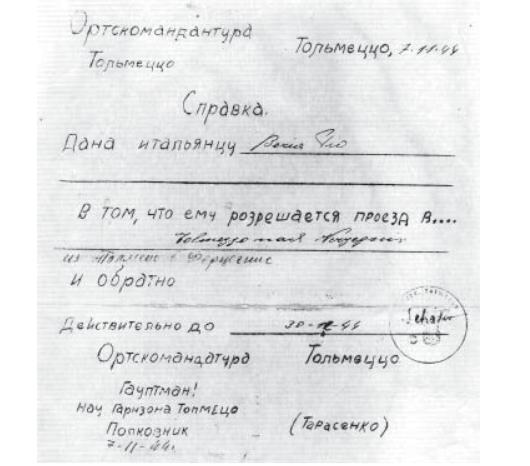 Ортскомандантура
Тольмеццо, 7-11-44
Тольмеццо
Справка.
Дана итальянцу
В том, что ему розрешается проезд в....
из
и обратно
Действительно до 30-11-44
Ортскомандатура Тольмеццо
Гауптман!
Нач Гарнзона Толмецо
Полковник (Тарасенко)
7-11-44г.